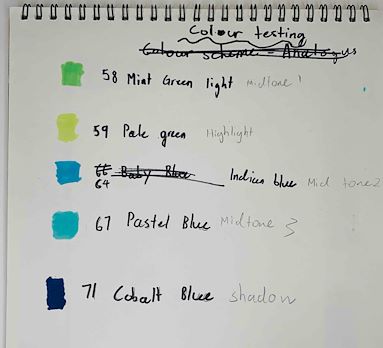 Colour testing
Colour scheme - Analogus
58 Mint Green light Midtone 1
59 Pale green Highlight
66 Baby Blue
64 Indian blue Mid tone 2
67 Pastel Blue Midtone 3
71 Cobalt Blue shadow